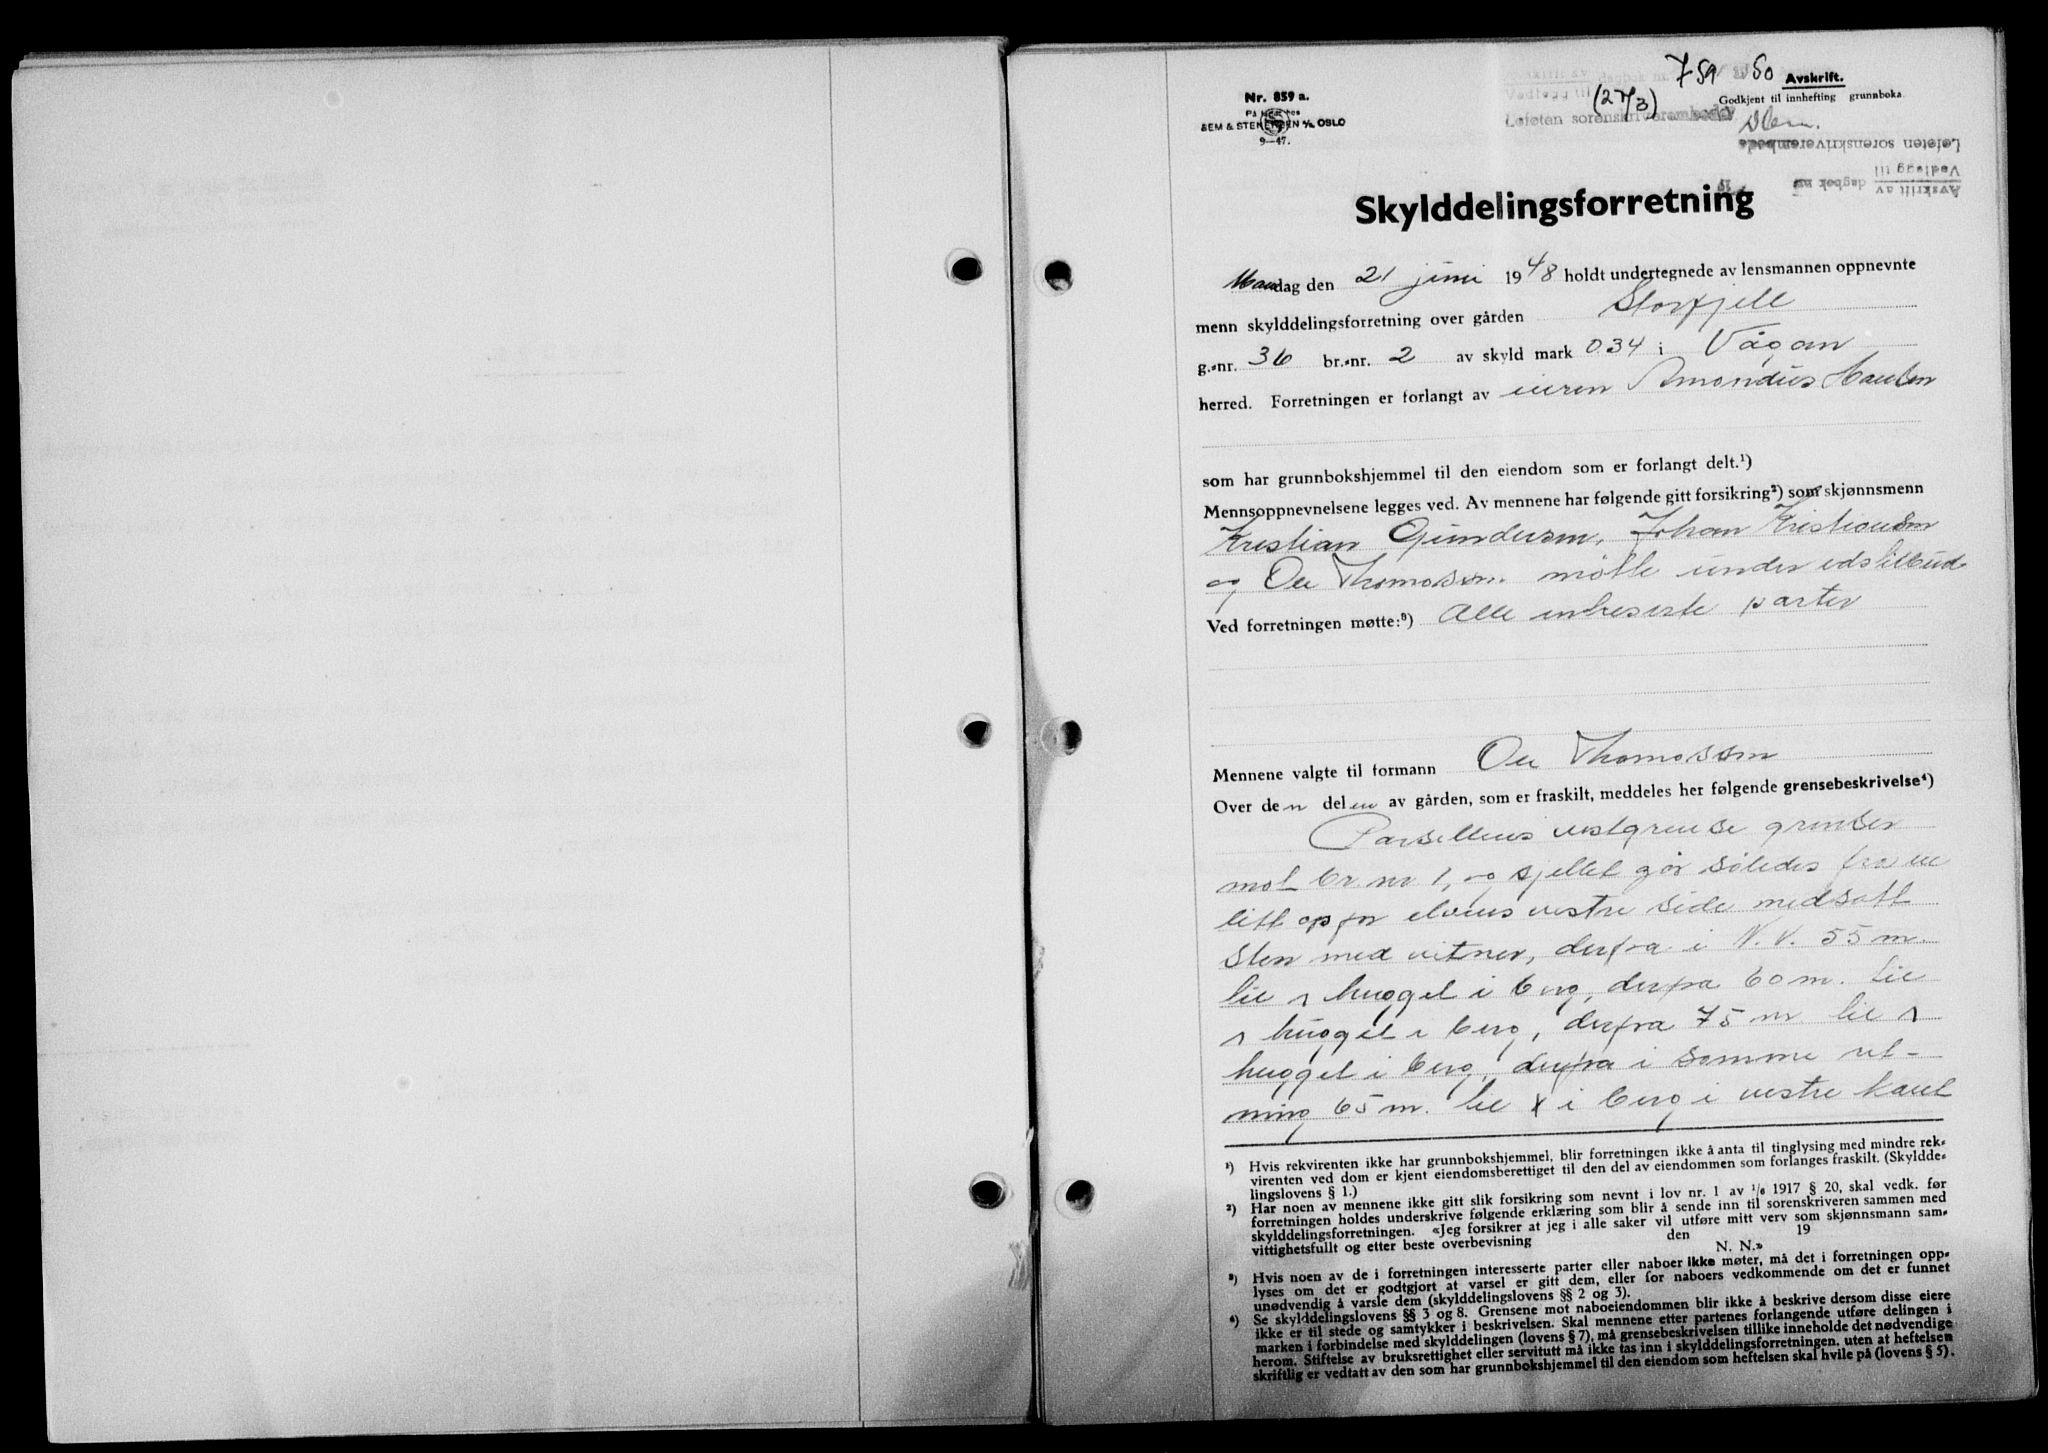 759 50
Avskrift.
(27/3)
Godkjent til innhefting grunnboka
Nr. 859 a.
SEM & STENERSEN A/S OSLO
9—47.
Lofoten sorenskriverembede
Lofoten sorenskriverembede
Vedlegg til
Avskrift av dagbok nr. 19
Skylddelingsforretning
Mandag den 21 juni 1948 holdt undertegnede av lensmannen oppnevnte
menn skylddelingsforretning over gården Storfjell
g.-nr. 36 br.-nr. 2 av skyld mark 0.34 i Vågan
herred. Forretningen er forlangt av eieren Amandus Hansen
som har grunnbokshjemmel til den eiendom som er forlangt delt.¹)
Mennsoppnevnelsene legges ved. Av mennene har følgende gitt forsikring²) som skjønnsmenn
Kristian Gundersen, Johan Kristiansen
og Ole Thomassen. møtte under edstilbud
Ved forretningen møtte:³) Alle intereserte parter
Mennene valgte til formann Ole Thomassen
Over den delen av gården, som er fraskilt, meddeles her følgende grensebeskrivelse⁴)
Parsellens vestgrense grenser
mot br. nr 1, og sjellet går således fra en
litt op for elvens vestre side nedsatt
sten med vitner, derfra i N.V. 55 m.
til x hugget i berg, derfra 60 m. til
x hugget i berg, derfra 75 m til x
hugget i berg, derfra i samme ret-
ning 65 m. til x i berg i vestre kant
¹) Hvis rekvirenten ikke har grunnbokshjemmel, blir forretningen ikke å anta til tinglysing med mindre rek-
virenten ved dom er kjent eiendomsberettiget til den del av eiendommen som forlanges fraskilt. (Skyldde-
lingslovens § 1.)
²) Har noen av mennene ikke gitt slik forsikring som nevnt i lov nr. 1 av 1/6 1917 § 20, skal vedk. før
forretningen holdes underskrive følgende erklæring som blir å sende inn til sorenskriveren sammen med
skylddelingsforretningen. «Jeg forsikrer at jeg i alle saker vil utføre mitt verv som skjønnsmann sam-
vittighetsfullt og etter beste overbevisning den 19
N. N.»
³) Hvis noen av de i forretningen interesserte parter eller naboer ikke møter, må det i forretningen opp-
lyses om det er godtgjort at varsel er gitt dem, eller for naboers vedkommende om det er funnet
unødvendig å varsle dem (skylddelingslovens §§ 2 og 3).
⁴) Se skylddelingslovens §§ 3 og 8. Grensene mot naboeiendommen blir ikke å beskrive dersom disse eiere
ikke er til stede og samtykker i beskrivelsen. Skal mennene etter partenes forlangende utføre delingen i
marken i forbindelse med skylddelingen (lovens § 7), må grensebeskrivelsen tillike inneholde det nødvendige
herom. Stiftelse av bruksrettighet eller servitutt må ikke tas inn i skylddelingsforretningen, uten at heftelsen
skriftlig er vedtatt av den som har grunnbokshjemmel til den eiendom som heftelsen skal hvile på (lovens § 5).